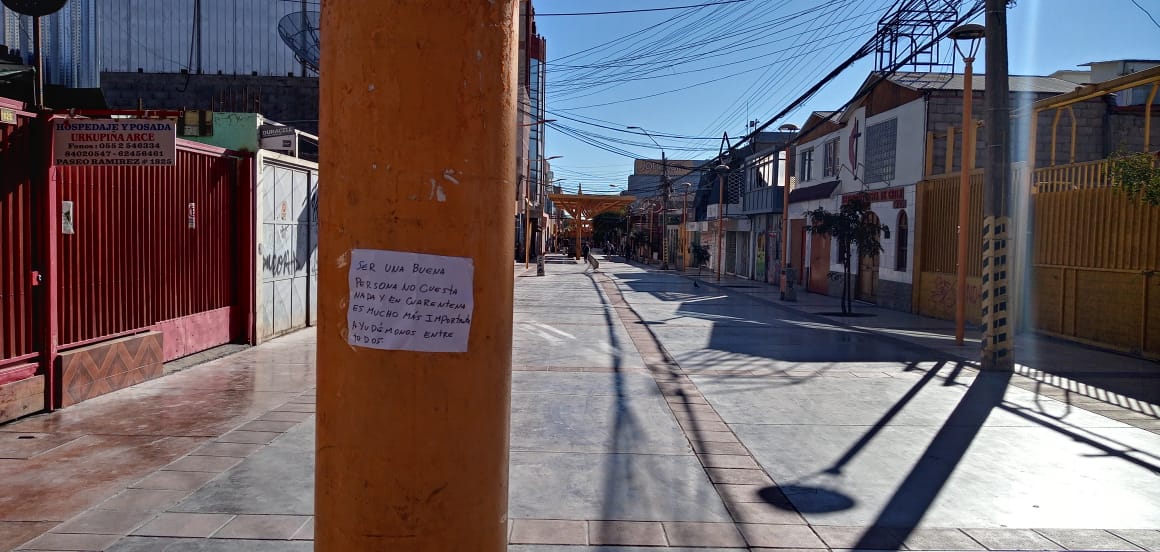 HOSPEDAJE Y POSADA
URKUPIÑA ARCE
Fonos: 055 2 546334
84020547 - 62456461
PASEO RAMIREZ # 1825
DURACELL
SER UNA BUENA
PERSONA NO CUESTA
NADA Y EN CUARENTENA
ES MUCHO MÁS IMPORTANTE
AYUDÉMONOS ENTRE
TODOS
DE CHILE